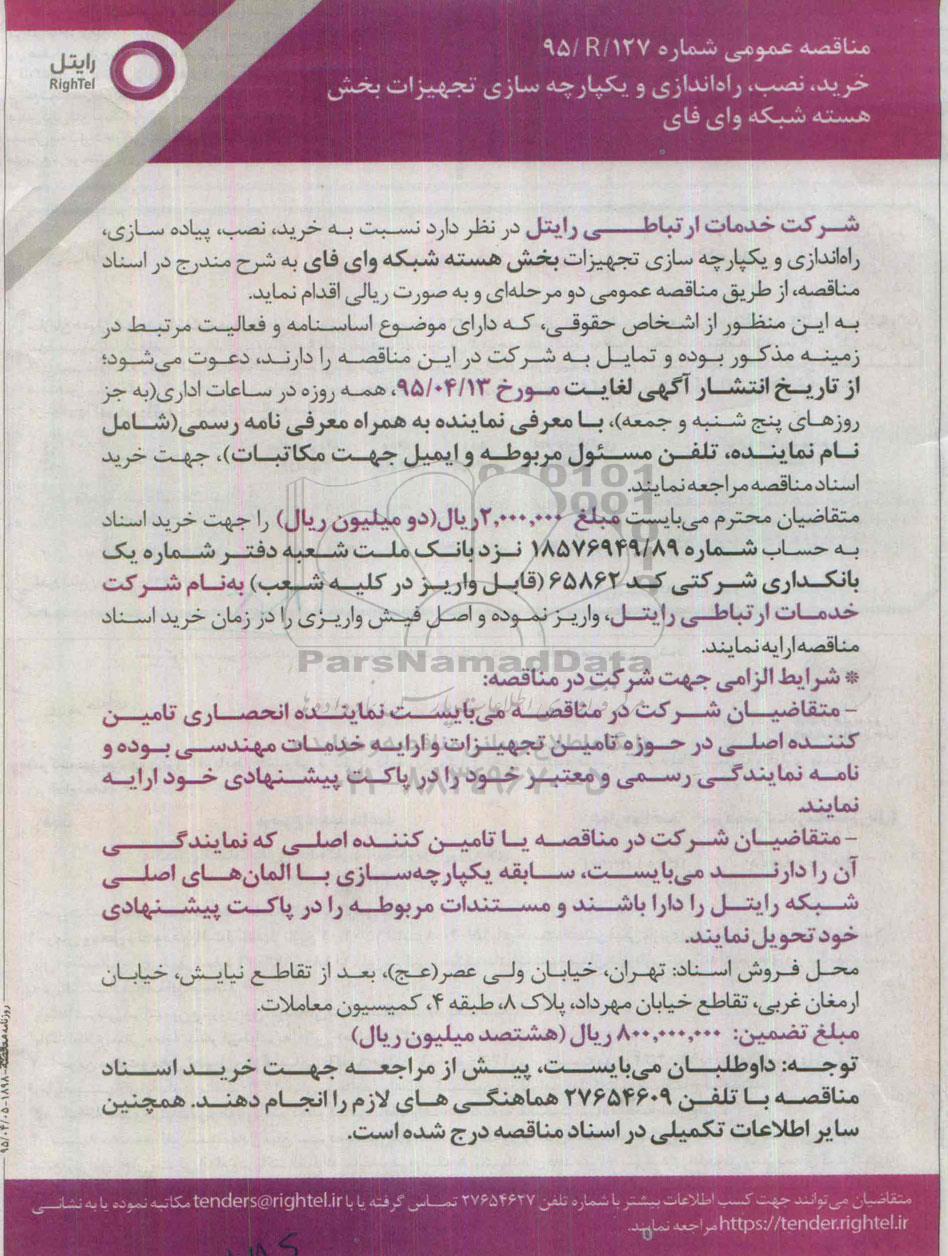 مناقصه عمومی شماره ۹۵/R/۱۲۷
خرید، نصب، راه‌اندازی و یکپارچه سازی تجهیزات بخش
هسته شبکه وای فای
رایتل
RighTel
شرکت خدمات ارتباطی رایتل در نظر دارد نسبت به خرید، نصب، پیاده سازی،
راه‌اندازی و یکپارچه سازی تجهیزات بخش هسته شبکه وای فای به شرح مندرج در اسناد
مناقصه، از طریق مناقصه عمومی دو مرحله‌ای و به صورت ریالی اقدام نماید.
به این منظور از اشخاص حقوقی، که دارای موضوع اساسنامه و فعالیت مرتبط در
زمینه مذکور بوده و تمایل به شرکت در این مناقصه را دارند، دعوت می‌شود؛
از تاریخ انتشار آگهی لغایت مورخ ۹۵/۰۴/۱۳، همه روزه در ساعات اداری(به جز
روزهای پنج شنبه و جمعه)، با معرفی نماینده به همراه معرفی نامه رسمی(شامل
نام نماینده، تلفن مسئول مربوطه و ایمیل جهت مکاتبات)، جهت خرید
اسناد مناقصه مراجعه نمایند.
متقاضیان محترم می‌بایست مبلغ ۲,۰۰۰,۰۰۰ریال(دو میلیون ریال) را جهت خرید اسناد
به حساب شماره ۱۸۵۷۶۹۴۹/۸۹ نزد بانک ملت شعبه دفتر شماره یک
بانکداری شرکتی کد ۶۵۸۶۲ (قابل واریز در کلیه شعب) به‌نام شرکت
خدمات ارتباطی رایتل، واریز نموده و اصل فیش واریزی را در زمان خرید اسناد
مناقصه ارایه نمایند.
ParsNamadData
* شرایط الزامی جهت شرکت در مناقصه:
– متقاضیان شرکت در مناقصه می‌بایست نماینده انحصاری تامین
کننده اصلی در حوزه تامین تجهیزات و ارایه خدمات مهندسی بوده و
نامه نمایندگی رسمی و معتبر خود را در پاکت پیشنهادی خود ارایه
نمایند.
۰۲۱-۸۸۳۴۹۶۷۰-۵
– متقاضیان شرکت در مناقصه یا تامین کننده اصلی که نمایندگی
آن را دارند می‌بایست، سابقه یکپارچه‌سازی با المان‌های اصلی
شبکه رایتل را دارا باشند و مستندات مربوطه را در پاکت پیشنهادی
خود تحویل نمایند.
محل فروش اسناد: تهران، خیابان ولی عصر(عج)، بعد از تقاطع نیایش، خیابان
ارمغان غربی، تقاطع خیابان مهرداد، پلاک ۸، طبقه ۴، کمیسیون معاملات.
مبلغ تضمین: ۸۰۰,۰۰۰,۰۰۰ ریال (هشتصد میلیون ریال)
توجه: داوطلبان می‌بایست، پیش از مراجعه جهت خرید اسناد
مناقصه با تلفن ۲۷۶۵۴۶۰۹ هماهنگی های لازم را انجام دهند. همچنین
سایر اطلاعات تکمیلی در اسناد مناقصه درج شده است.
متقاضیان می‌توانند جهت کسب اطلاعات بیشتر با شماره تلفن ۲۷۶۵۴۶۲۷ تماس گرفته یا با tenders@rightel.ir مکاتبه نموده یا به نشانی
https://tender.rightel.ir مراجعه نمایند.